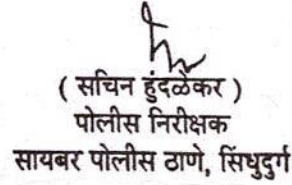 ( सचिन हुंदळेकर )
पोलीस निरीक्षक
सायबर पोलीस ठाणे, सिंधुदुर्ग